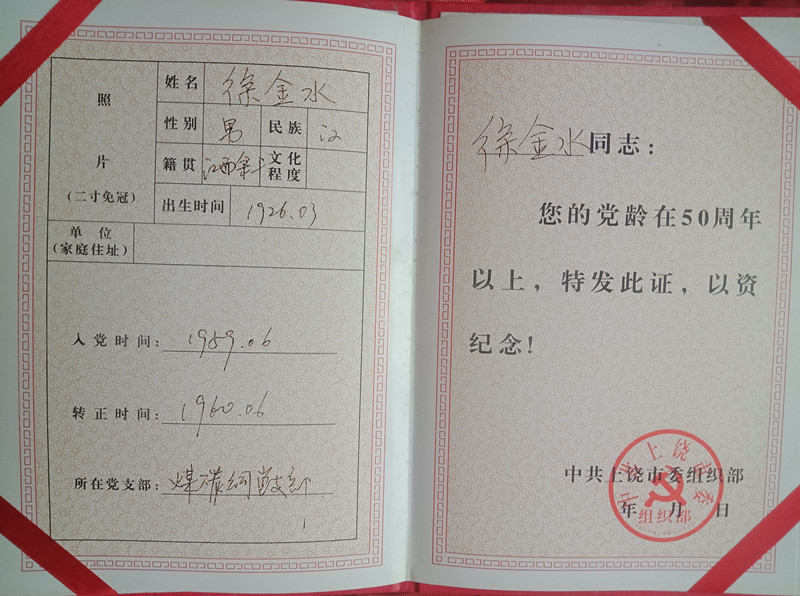 照
片
(二寸免冠)
姓名 徐金水
性别 男 民族 汉
籍贯 江西余干 文化程度
出生时间 1926.03
单位
(家庭住址)
入党时间: 1959.06
转正时间: 1960.06
所在党支部: 煤炭
徐金水同志:
您的党龄在50周年
以上，特发此证，以资
纪念!
中共上饶市委组织部
年 月 日
中共上饶市委
组织部